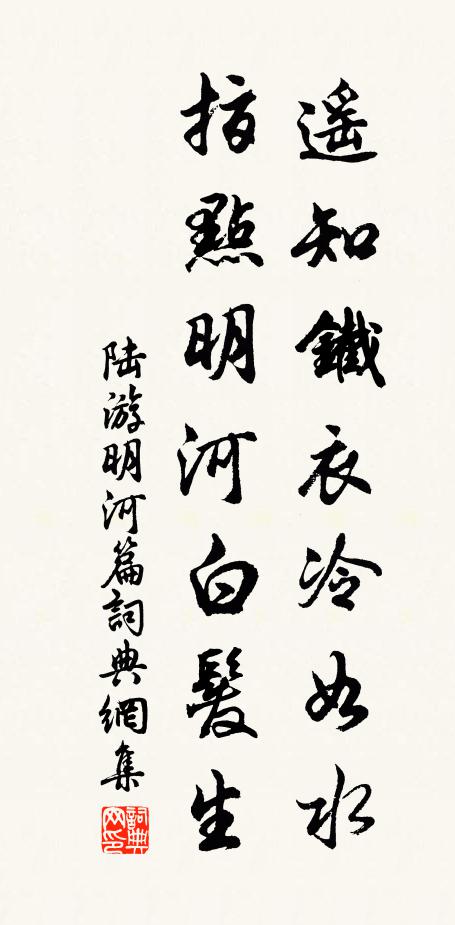 遥知鐵衣冷如水
指點明河白髮生
陆游明河篇詞典網集
詞典网印